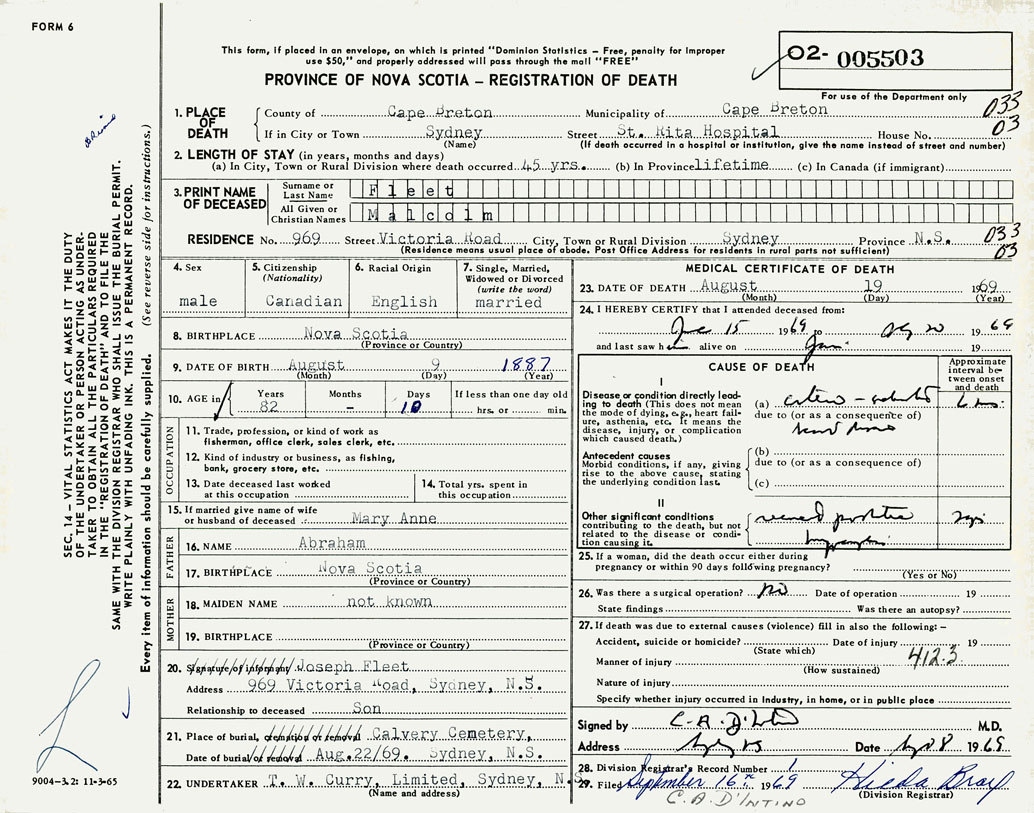 FORM 6
This form, if placed in an envelope, on which is printed "Dominion Statistics – Free, penalty for improper
use $50," and properly addressed will pass through the mail "FREE"
PROVINCE OF NOVA SCOTIA – REGISTRATION OF DEATH
02- 005503
For use of the Department only
033
03
1. PLACE OF DEATH
County of Cape Breton Municipality of Cape Breton
If in City or Town Sydney Street St. Rita Hospital House No.
(Name) (If death occurred in a hospital or institution, give the name instead of street and number)
2. LENGTH OF STAY (in years, months and days)
(a) In City, Town or Rural Division where death occurred 45 yrs. (b) In Province lifetime (c) In Canada (if immigrant)
3. PRINT NAME OF DECEASED
Surname or Last Name Fleet
All Given or Christian Names Malcolm
RESIDENCE No. 969 Street Victoria Road City, Town or Rural Division Sydney Province N.S.
(Residence means usual place of abode. Post Office Address for residents in rural parts not sufficient)
033
03
4. Sex
male
5. Citizenship
(Nationality)
Canadian
6. Racial Origin
English
7. Single, Married,
Widowed or Divorced
(write the word)
married
8. BIRTHPLACE Nova Scotia
(Province or Country)
9. DATE OF BIRTH August 9 1887
(Month) (Day) (Year)
10. AGE in
Years Months Days If less than one day old
82 – 10 hrs. or min.
OCCUPATION
11. Trade, profession, or kind of work as
fisherman, office clerk, sales clerk, etc.
12. Kind of industry or business, as fishing,
bank, grocery store, etc.
13. Date deceased last worked
at this occupation
14. Total yrs. spent in
this occupation
15. If married give name of wife
or husband of deceased Mary Anne
FATHER
16. NAME Abraham
17. BIRTHPLACE Nova Scotia
(Province or Country)
MOTHER
18. MAIDEN NAME not known
19. BIRTHPLACE
(Province or Country)
20. Signature of informant Joseph Fleet
Address 969 Victoria Road, Sydney, N.S.
Relationship to deceased Son
21. Place of burial, cremation or removal Calvery Cemetery,
Date of burial or removal Aug.22/69. Sydney, N.S.
22. UNDERTAKER T. W. Curry, Limited, Sydney, N.S
(Name and address)
MEDICAL CERTIFICATE OF DEATH
23. DATE OF DEATH August 19 1969
(Month) (Day) (Year)
24. I HEREBY CERTIFY that I attended deceased from:
15 1969 to 20 1969
and last saw h alive on 19
CAUSE OF DEATH
Approximate
interval be-
tween onset
and death
I
Disease or condition directly lead-
ing to death (This does not mean
the mode of dying, e.g., heart fail-
ure, asthenia, etc. It means the
disease, injury, or complication
which caused death.)
(a)
due to (or as a consequence of)
Antecedent causes
Morbid conditions, if any, giving
rise to the above cause, stating
the underlying condition last.
(b)
due to (or as a consequence of)
(c)
II
Other significant conditions
contributing to the death, but not
related to the disease or condi-
tion causing it.
25. If a woman, did the death occur either during
pregnancy or within 90 days following pregnancy?
(Yes or No)
26. Was there a surgical operation? no Date of operation 19
State findings Was there an autopsy?
27. If death was due to external causes (violence) fill in also the following: –
Accident, suicide or homicide? Date of injury 19
(State which)
Manner of injury 412.3
(How sustained)
Nature of injury
Specify whether injury occurred in industry, in home, or in public place
Signed by C. A. D'Intino M.D.
Address Date 8 1969
28. Division Registrar's Record Number 1
29. Filed September 16th 1969 Hilda Bray
(Division Registrar)
C. A. D'INTINO
SEC. 14 – VITAL STATISTICS ACT MAKES IT THE DUTY
OF THE UNDERTAKER OR PERSON ACTING AS UNDER-
TAKER TO OBTAIN ALL THE PARTICULARS REQUIRED
IN THE "REGISTRATION OF DEATH" AND TO FILE THE
SAME WITH THE DIVISION REGISTRAR WHO SHALL ISSUE THE BURIAL PERMIT.
WRITE PLAINLY WITH UNFADING INK. THIS IS A PERMANENT RECORD.
Every item of information should be carefully supplied. (See reverse side for instructions.)
9004–3.2: 11-3-65